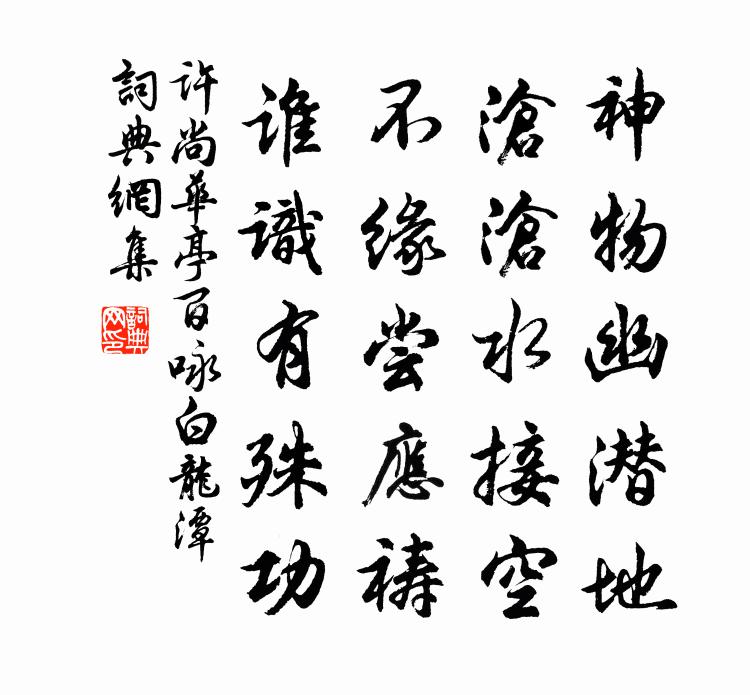 神物幽潜地
滄滄水接空
不緣尝應禱
誰識有殊功
许尚華亭百咏白龍潭
詞典網集
詞典网印